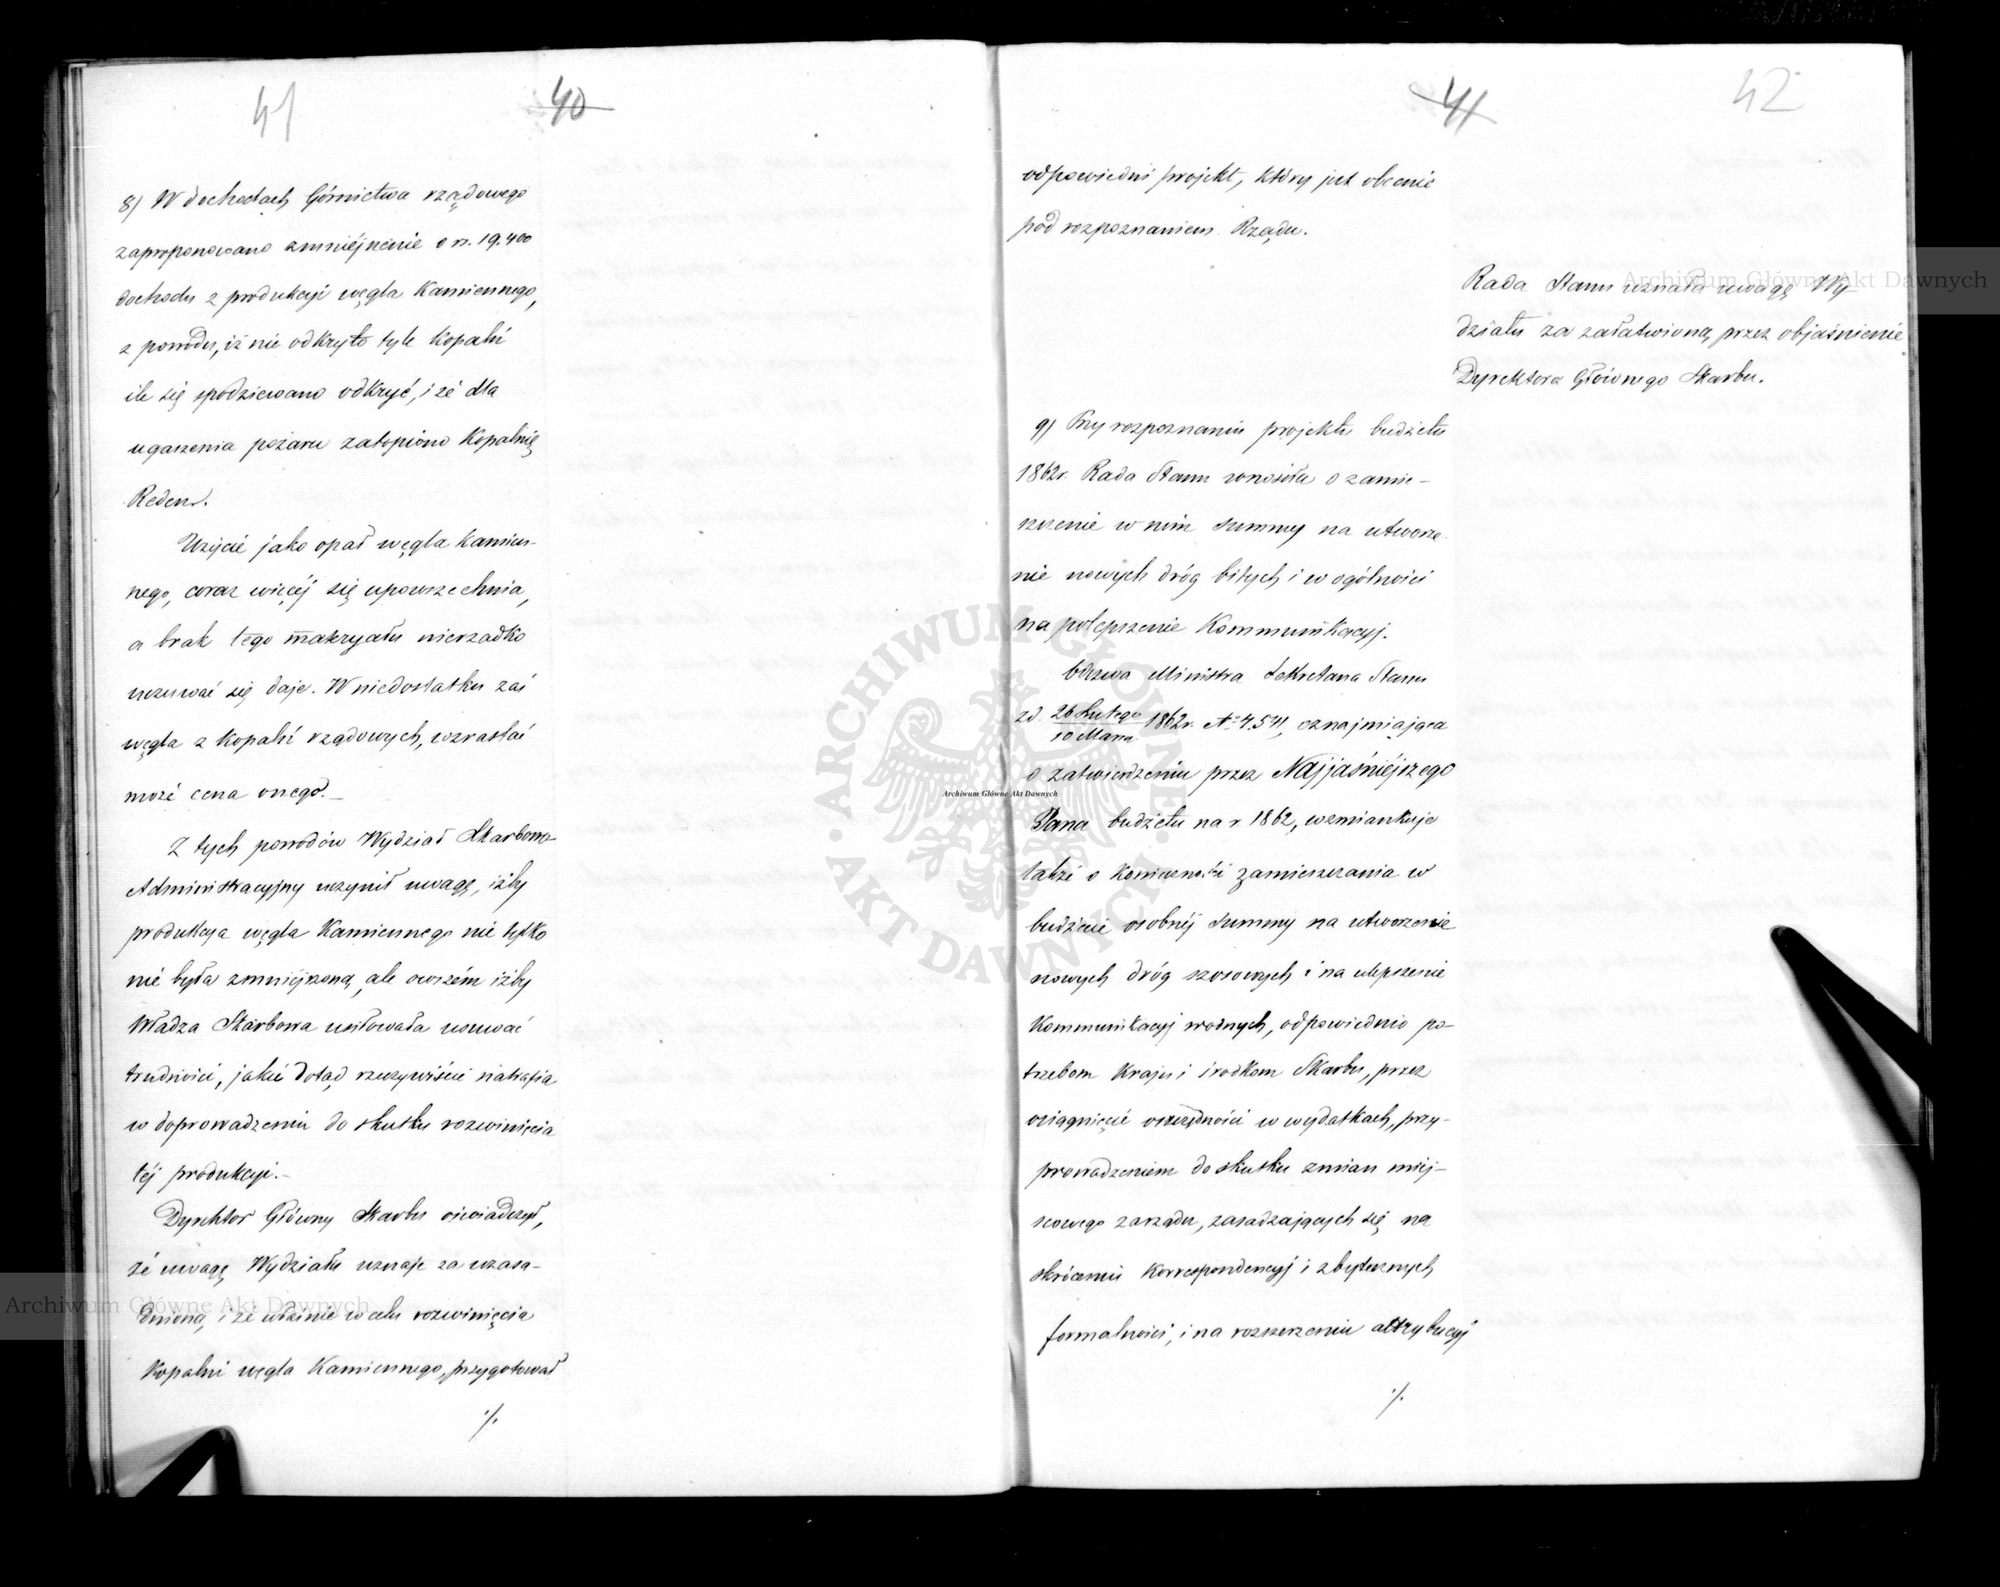 41
40
8) W dochodach Górnictwa rządowego
zaproponowano zmniejszenie o rs. 19,400
dochodu z produkcyi węgla Kamiennego,
z powodu, iż nie odkryto tyle Kopalń
ile się spodziewano odkryć, i że dla
ugaszenia pożaru zatopiono Kopalnię
Reden.
Użycie jako opał węgla Kamien-
nego, coraz więcéj się upowszechnia,
a brak tego materyału nierzadko
uczuwać się daje. W niedostatku zaś
węgla z Kopalń rządowych, wzrastać
może cena onego.—
Z tych powodów Wydział Skarbowo-
Administracyjny uczynił uwagę, iżby
produkcya węgla Kamiennego nie tylko
nie była zmniejszoną, ale owszém iżby
Władza Skarbowa usiłowała usuwać
trudności, jakie dotąd rzeczywiście natrafia
w doprowadzeniu do skutku rozwinięcia
téj produkcyi.—
Dyrektor Główny Skarbu oświadczył,
że uwagę Wydziału uznaje za uzasa-
dnioną, i że właśnie w celu rozwinięcia
Kopalni węgla Kamiennego, przygotował
./.
41
42
odpowiedni projekt, który jest obecnie
pod rozpoznaniem Rządu.
Rada Stanu uznała uwagę Wy
działu za załatwioną przez objaśnienie
Dyrektora Głównego Skarbu.
9) Przy rozpoznaniu projektu budżetu
1862r. Rada Stanu wnosiła o zamie-
szczenie w nim summy na utworze-
nie nowych dróg bitych i w ogólności
na polepszenie Kommunikacyj.
Odezwa Ministra Sekretarza Stanu
zd. 26 Lutego
10 Marca
1862r. No 4.541, oznajmiająca
o zatwierdzeniu przez Najjaśniejszego
Pana budżetu na r. 1862, wzmiankuje
także o Konieczności zamieszczania w
budżecie osobnéj summy na utworzenie
nowych dróg szosowych i na ulepszenie
Kommunikacyj wodnych, odpowiednio po-
trzebom Kraju i środkom Skarbu, przez
osiągnięcie oszczędności w wydatkach, przy-
prowadzeniem do skutku zmian miej-
scowego zarządu, zasadzających się na
skróceniu Korrespondencyj i zbytecznych
formalności, i na rozszerzeniu attrybucyj
./.
Archiwum Główne Akt Dawnych
Archiwum Główne Akt Dawnych
Archiwum Główne Akt Dawnych
ARCHIWUM GŁÓWNE AKT DAWNYCH